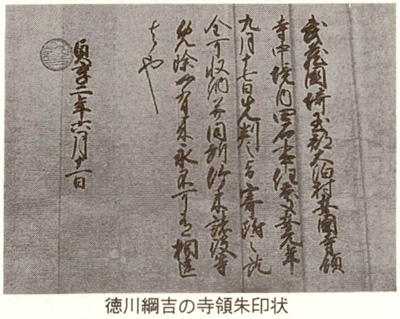 武蔵國埼玉郡大泊村安國寺領
寺中境内四石事任慶安元年
九月十七日先判之旨寄附之訖
全可収納并同所竹木諸役等
免除如有来永不可有相違
者也
貞享二年六月十一日
徳川綱吉の寺領朱印状